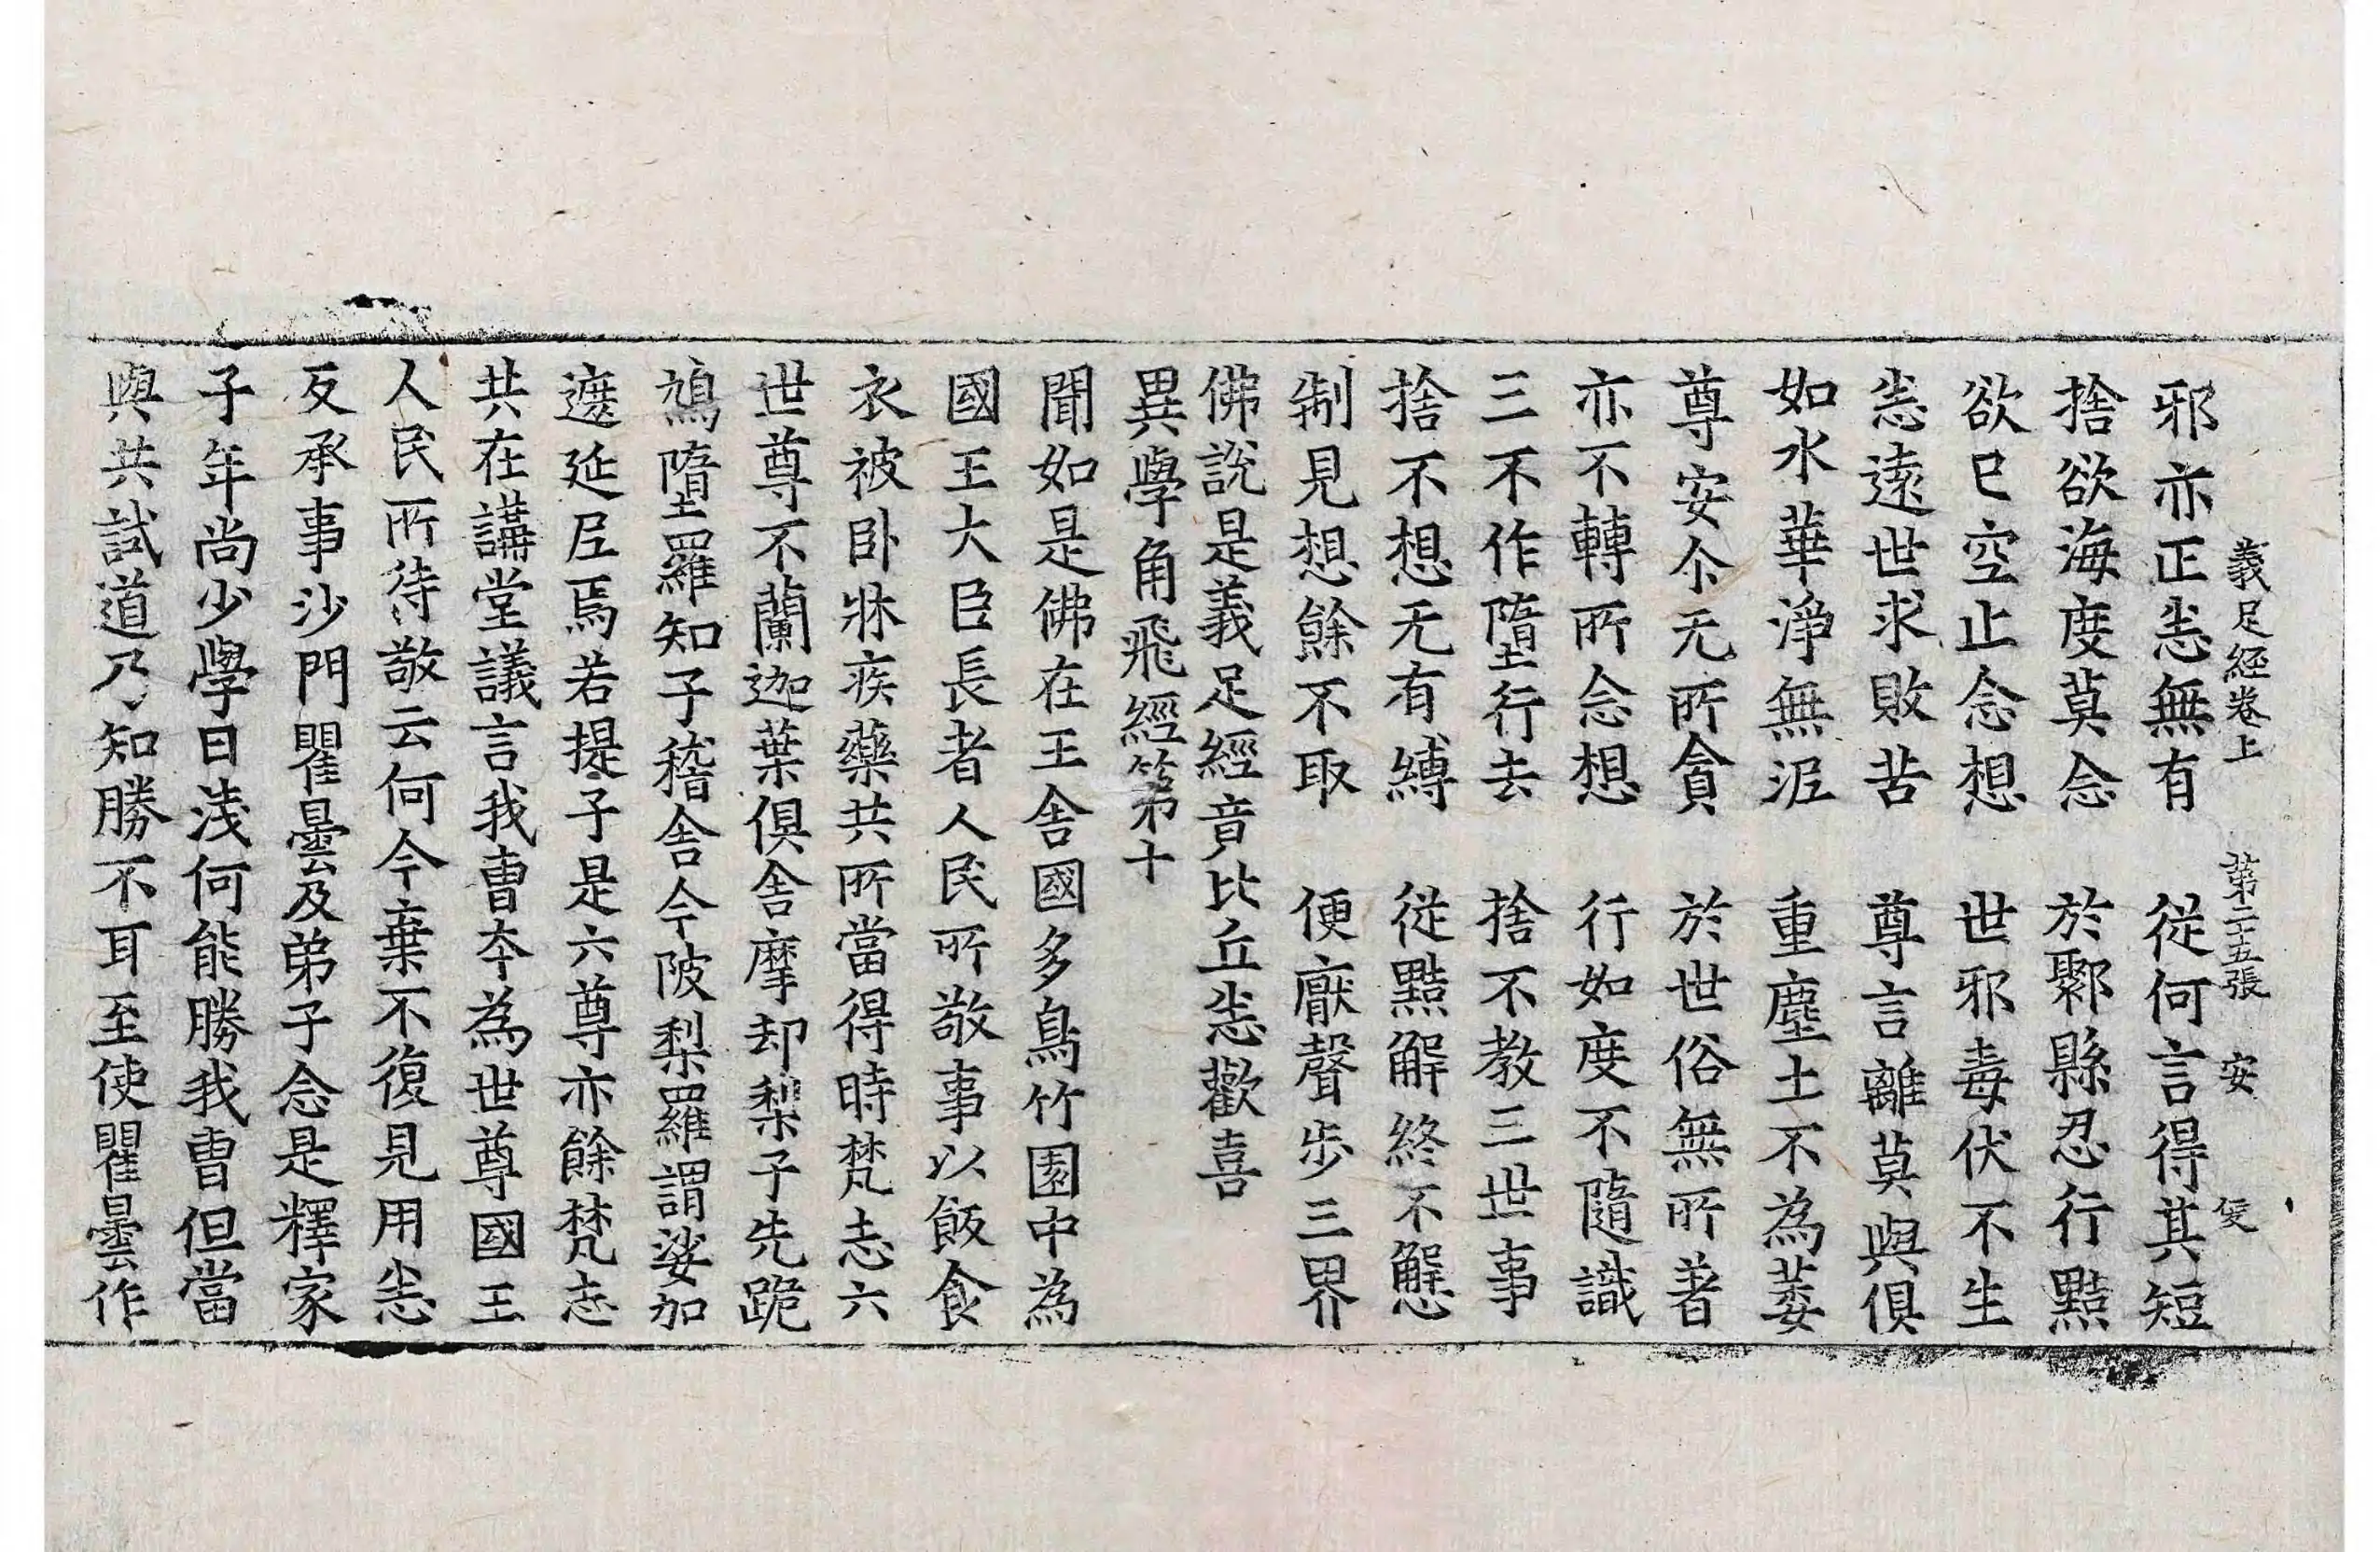 義足經卷上 第二十五張 安
邪亦正恚無有 從何言得其短
捨欲海度莫念 於鄹縣忍行黠
欲已空止念想 世邪毒伏不生
恚遠世求敗苦 尊言離莫與俱
如水華淨無泥 重塵土不為萎
尊安尒无所貪 於世俗無所著
亦不轉所念想 行如度不隨識
三不作墮行去 捨不教三世事
捨不想无有縛 從黠解終不懈
制見想餘不取 便厭聲步三界
佛說是義足經竟比丘恚歡喜
異學角飛經第十
聞如是佛在王舍國多鳥竹園中為
國王大臣長者人民所敬事以飯食
衣被卧牀疾藥共所當得時梵志六
世尊不蘭迦葉俱舍摩却梨子先跪
鳩墮羅知子稽舍今陂梨羅謂娑加
遮延尼焉若提子是六尊亦餘梵志
共在講堂議言我曹夲為世尊國王
人民所待敬云何今棄不復見用恚
反承事沙門瞿曇及弟子念是釋家
子年尚少學日淺何能勝我曹但當
與共試道乃知勝不耳至使瞿曇作